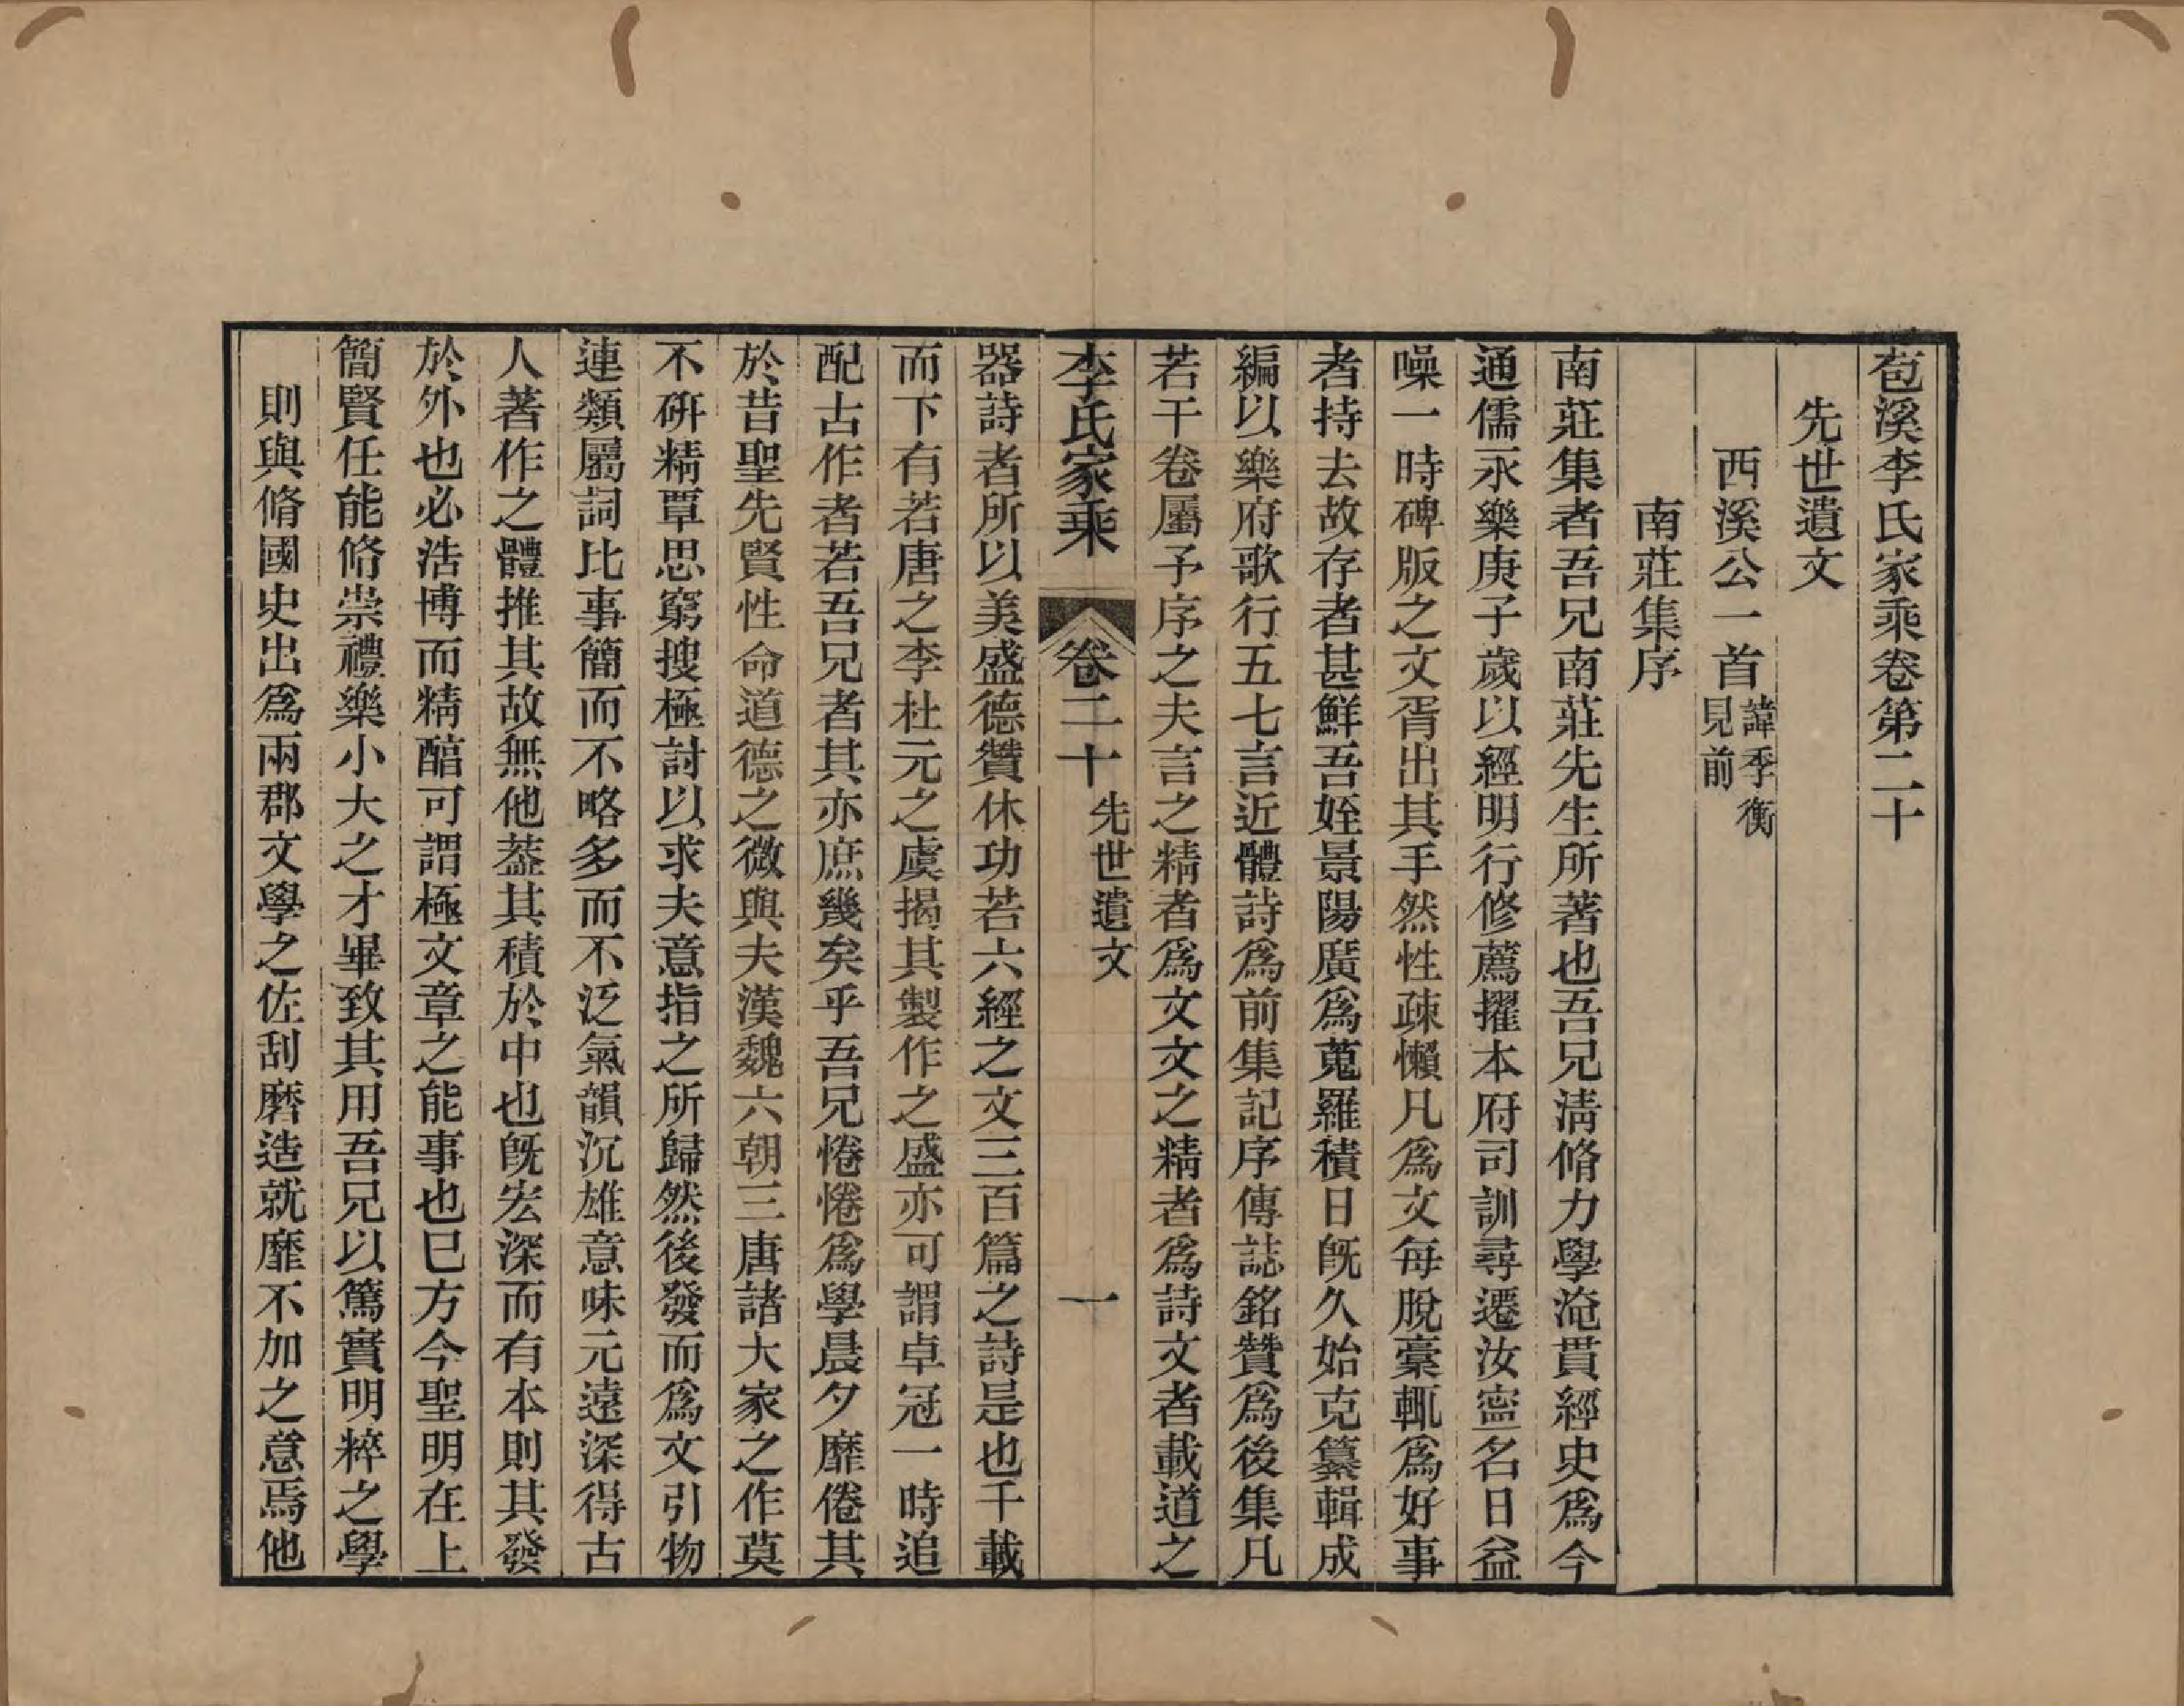 苞溪李氏家乘卷第二十
先世遺文
西溪公一首諱季衡見前
南莊集序
南莊集者吾兄南莊先生所著也吾兄淸脩力學淹貫經史爲今
通儒永樂庚子歲以經明行修薦擢本府司訓尋遷汝寍名日益
噪一時碑版之文胥出其手然性疎懶凡爲文每脫稾輒爲好事
者持去故存者甚鮮吾姪景陽廣爲蒐羅積日旣久始克纂輯成
編以樂府歌行五七言近體詩爲前集記序傳誌銘贊爲後集凡
若干卷屬予序之夫言之精者爲文文之精者爲詩文者載道之
李氏家乘
卷二十先世遺文
一
器詩者所以美盛德贊休功若六經之文三百篇之詩是也千載
而下有若唐之李杜元之虞揭其製作之盛亦可謂卓冠一時追
配古作者若吾兄者其亦庶幾矣乎吾兄惓惓爲學晨夕靡倦其
於昔聖先賢性命道德之微與夫漢魏六朝三唐諸大家之作莫
不硏精覃思窮搜極討以求夫意指之所歸然後發而爲文引物
連類屬詞比事簡而不略多而不泛氣韻沉雄意味元遠深得古
人著作之體推其故無他葢其積於中也旣宏深而有本則其發
於外也必浩博而精醕可謂極文章之能事也已方今聖明在上
簡賢任能脩崇禮樂小大之才畢致其用吾兄以篤實明粹之學
則與脩國史出爲兩郡文學之佐刮磨造就靡不加之意焉他